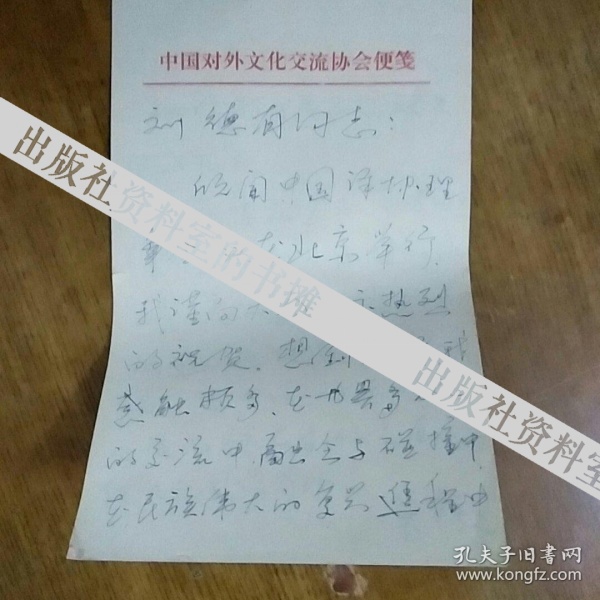 中国对外文化交流协会便笺
刘德有同志：
欣闻中国译协理
事 在北京举行，
我谨向大 示热烈
的祝贺。想到
感触颇多，在世界多
的交流中，融 与碰撞中，
在民族伟大的复兴进程中
出版社资料室的书摊
出版社资料室
孔夫子旧书网
www.kongfz.com